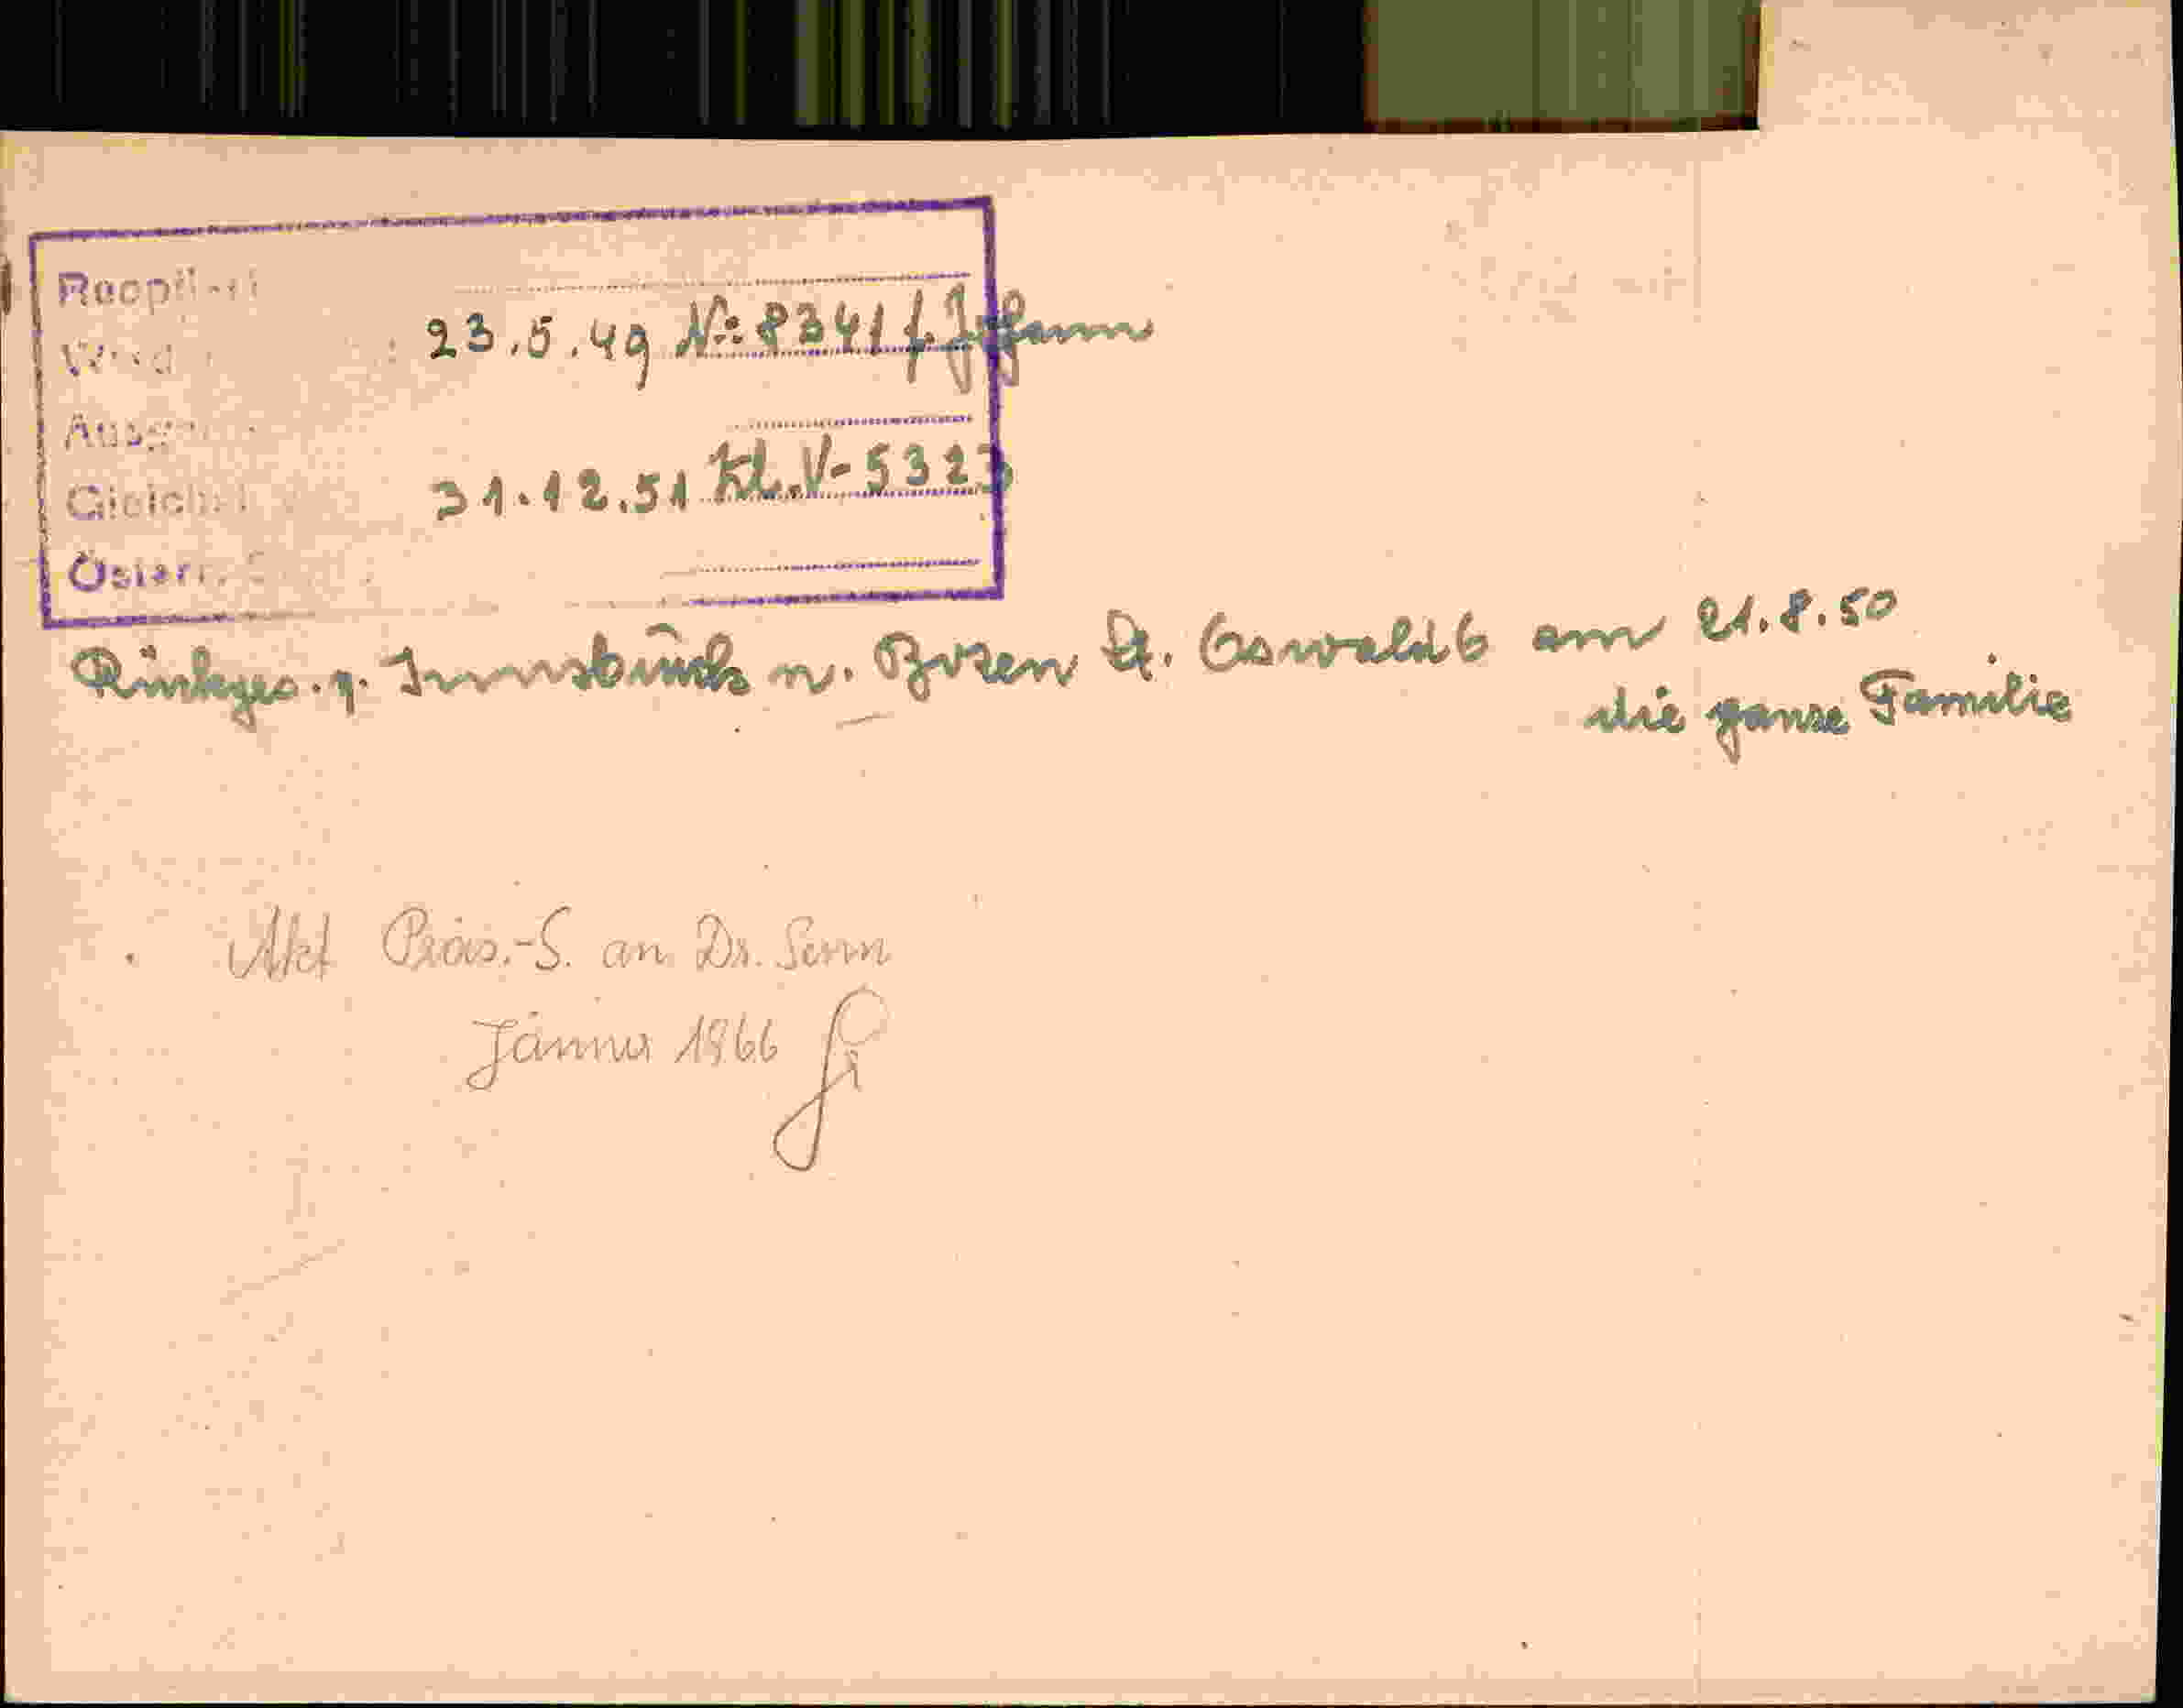 Reoptiert
23.5.49 No: 8341 f. Johann
31.12.51 Zl. V-5323
Österr.
Rückges. v. Innsbruck n. Bozen St. Oswald 6 am 21.8.50
die ganze Familie
Akt Präs.-S. an Dr. Senn
Jänner 1966